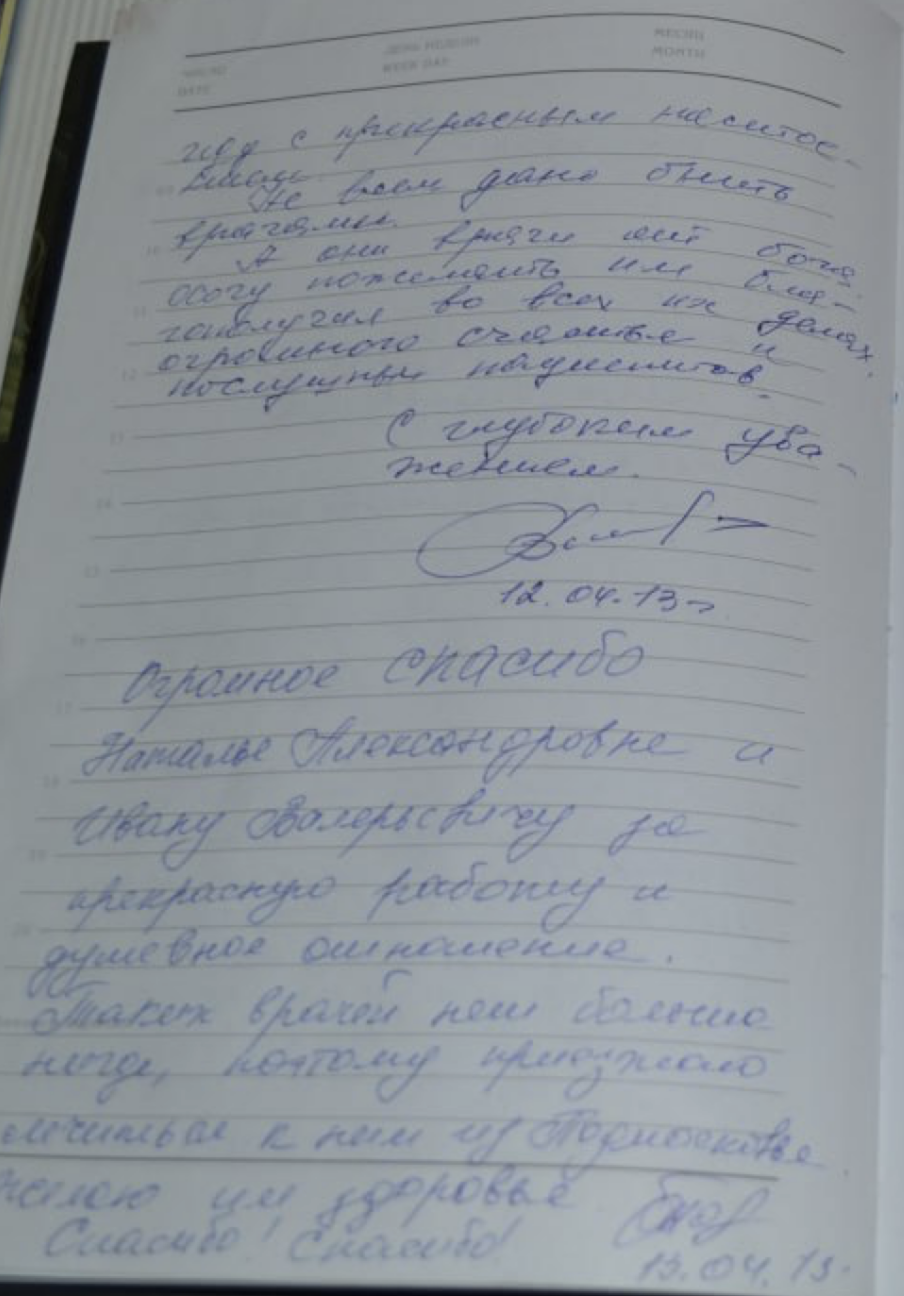 ЧИСЛО ДЕНЬ НЕДЕЛИ МЕСЯЦ
DATE WEEK DAY MONTH
с прекрасным
Не всем дано быть
врачами.
А они врачи от бога.
Хочу пожелать им бла-
гополучия во всех их делах,
огромного счастья и
послушных пациентов.
С глубоким ува-
жением.
12.04.13г
Огромное спасибо
Наталье Александровне и
Ивану Валерьевичу за
прекрасную работу и
душевное отношение.
Таких врачей нет больше
нигде, поэтому приезжаю
лечиться к ним из Подмосковья.
Желаю им здоровья
Спасибо! Спасибо!
13.04.13.